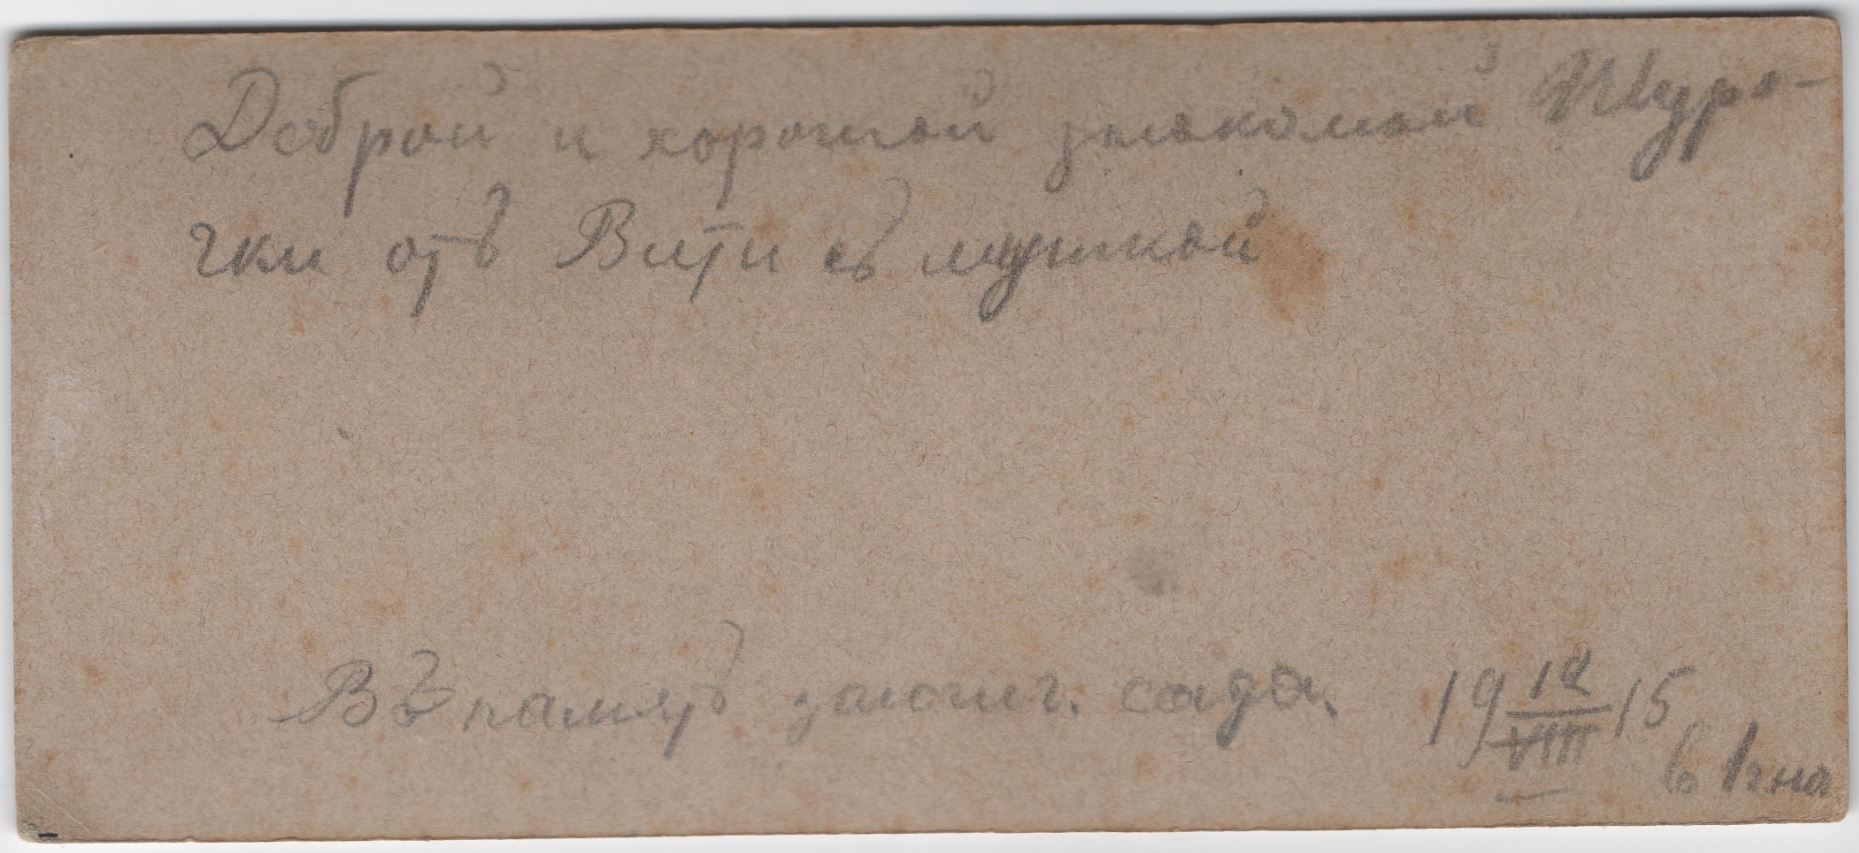 Доброй и хорошей знакомой Шуро-
чки отъ Вити съ мушкой
Въ память зоологич. сада. 19 12/VIII 15